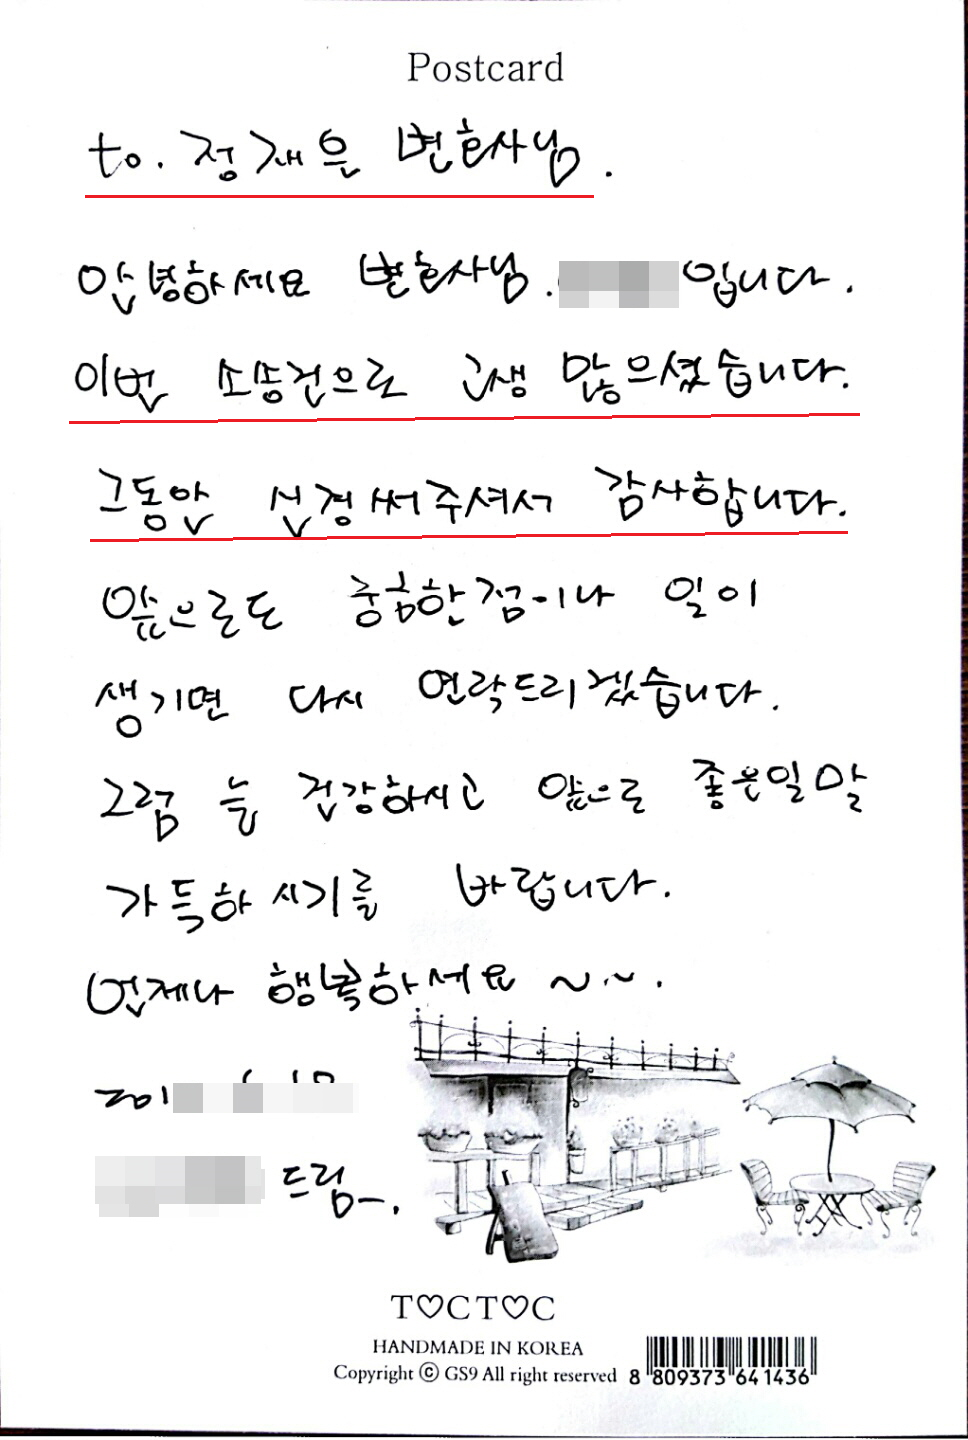 Postcard
to. 정재은 변호사님.
안녕하세요 변호사님. 입니다.
이번 소송건으로 고생 많으셨습니다.
그동안 신경써주셔서 감사합니다.
앞으로도 궁금한점이나 일이
생기면 다시 연락드리겠습니다.
그럼 늘 건강하시고 앞으로 좋은일만
가득하시기를 바랍니다.
언제나 행복하세요 ~~.
201
드림-.
T♡CT♡C
HANDMADE IN KOREA
Copyright ⓒ GS9 All right reserved
8 809373 641436